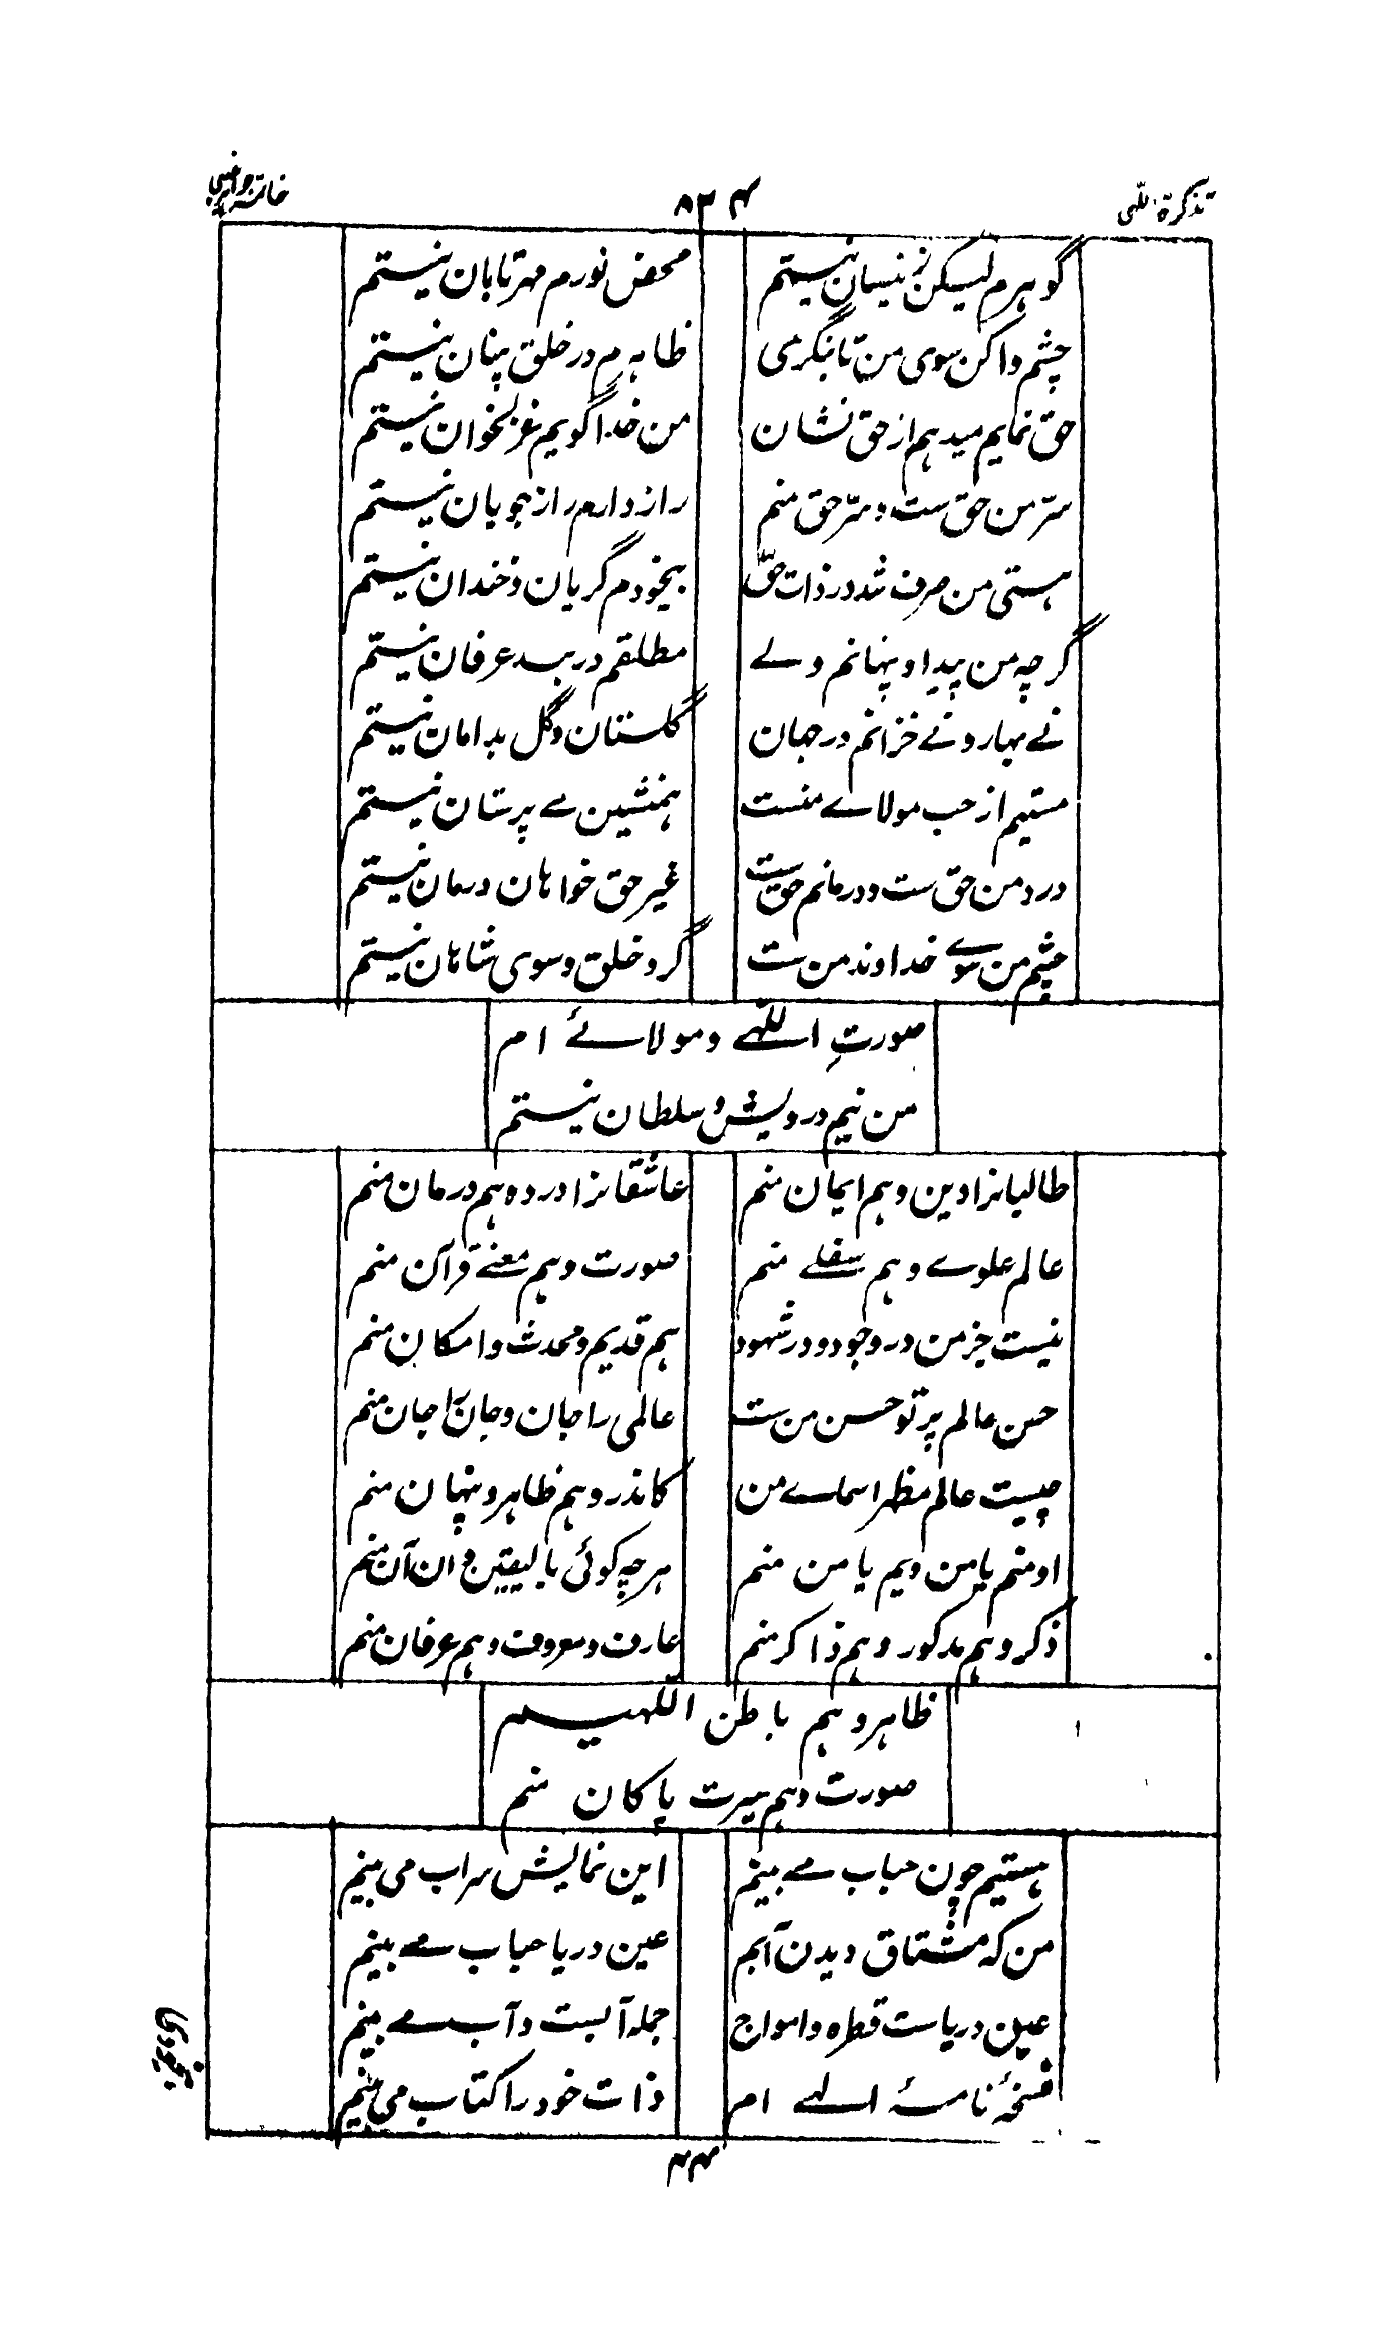 تذکرۃ اللہی
۵۳۴
خاتمہ
گوہرم لیکن ز نیسان نیستم
محض نورم مہر تابان نیستم
چشم وا کن سوی من تا بنگری
ظاہرم در خلق پنہان نیستم
حق نمایم میدہم از حق نشان
من خدا گویم غزلخوان نیستم
سرّ من حق ست و سرّ حق منم
رازدارم راز جویان نیستم
ہستی من صرف شد در ذات حق
بیخودم گریان و خندان نیستم
گرچہ من پیدا و پنہانم ولے
مطلقم در بند عرفان نیستم
نے بہار و نے خزانم در جہان
گلستان و گل بدامان نیستم
مستیم از حب مولاے منست
ہمنشین مے پرستان نیستم
درد من حق ست و درمانم حق ست
غیر حق خواہان درمان نیستم
چشم من سوے خداوند من ست
گرد خلق و سوی شاہان نیستم
صورتِ اللّٰہے و مولائے ام
من نیم درویش و سلطان نیستم
طالبانرا دین و ہم ایمان منم
عاشقانرا درد و ہم درمان منم
عالم علوے و ہم سفلے منم
صورت و ہم معنے قرآن منم
نیست جز من در وجود و در شہود
ہم قدیم و محدث و امکان منم
حسن عالم پرتو حسن من ست
عالمی را جان و جان را جان منم
چیست عالم مظہر اسماے من
کاندرو ہم ظاہر و پنہان منم
او منم یا من ویم یا من منم
ہرچہ گوئی بالیقین دان آن منم
ذکر و ہم مذکور و ہم ذاکر منم
عارف و معروف و ہم عرفان منم
ظاہر و ہم باطن اللّٰہیم
صورت و ہم سیرت پاکان منم
ہستیم چون حباب مے بینم
این نمایش سراب می بینم
من کہ مشتاق دیدن آبم
عین دریا حباب مے بینم
عین دریاست قطرہ و امواج
جملہ آبست و آب مے بینم
نسخۂ نامۂ الہے ام
ذات خود را کتاب می بینم
بیخودی
۴۴